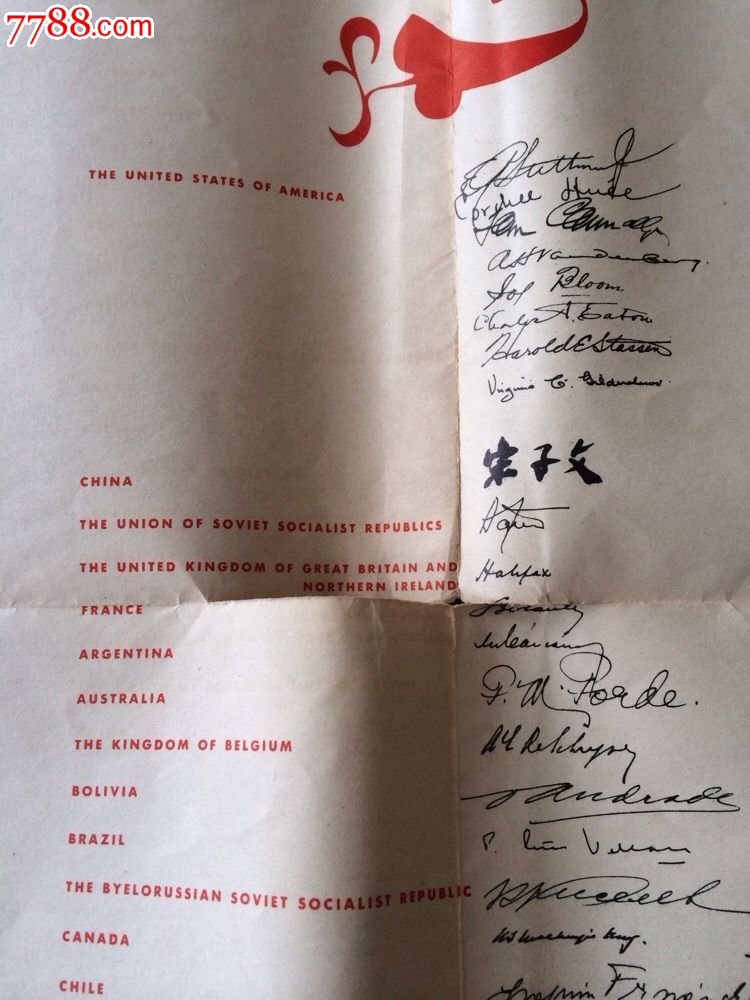 7788.com
THE UNITED STATES OF AMERICA
Cordell Hull
Tom Connally
AHVandenberg.
Sol Bloom
Charles A. Eaton
Harold E Stassen
Virginia C. Gildersleeve
CHINA 宋子文
THE UNION OF SOVIET SOCIALIST REPUBLICS
THE UNITED KINGDOM OF GREAT BRITAIN AND
NORTHERN IRELAND Halifax
FRANCE
ARGENTINA
AUSTRALIA F. M. Forde.
THE KINGDOM OF BELGIUM
BOLIVIA Andrade
BRAZIL
THE BYELORUSSIAN SOVIET SOCIALIST REPUBLIC
CANADA
CHILE